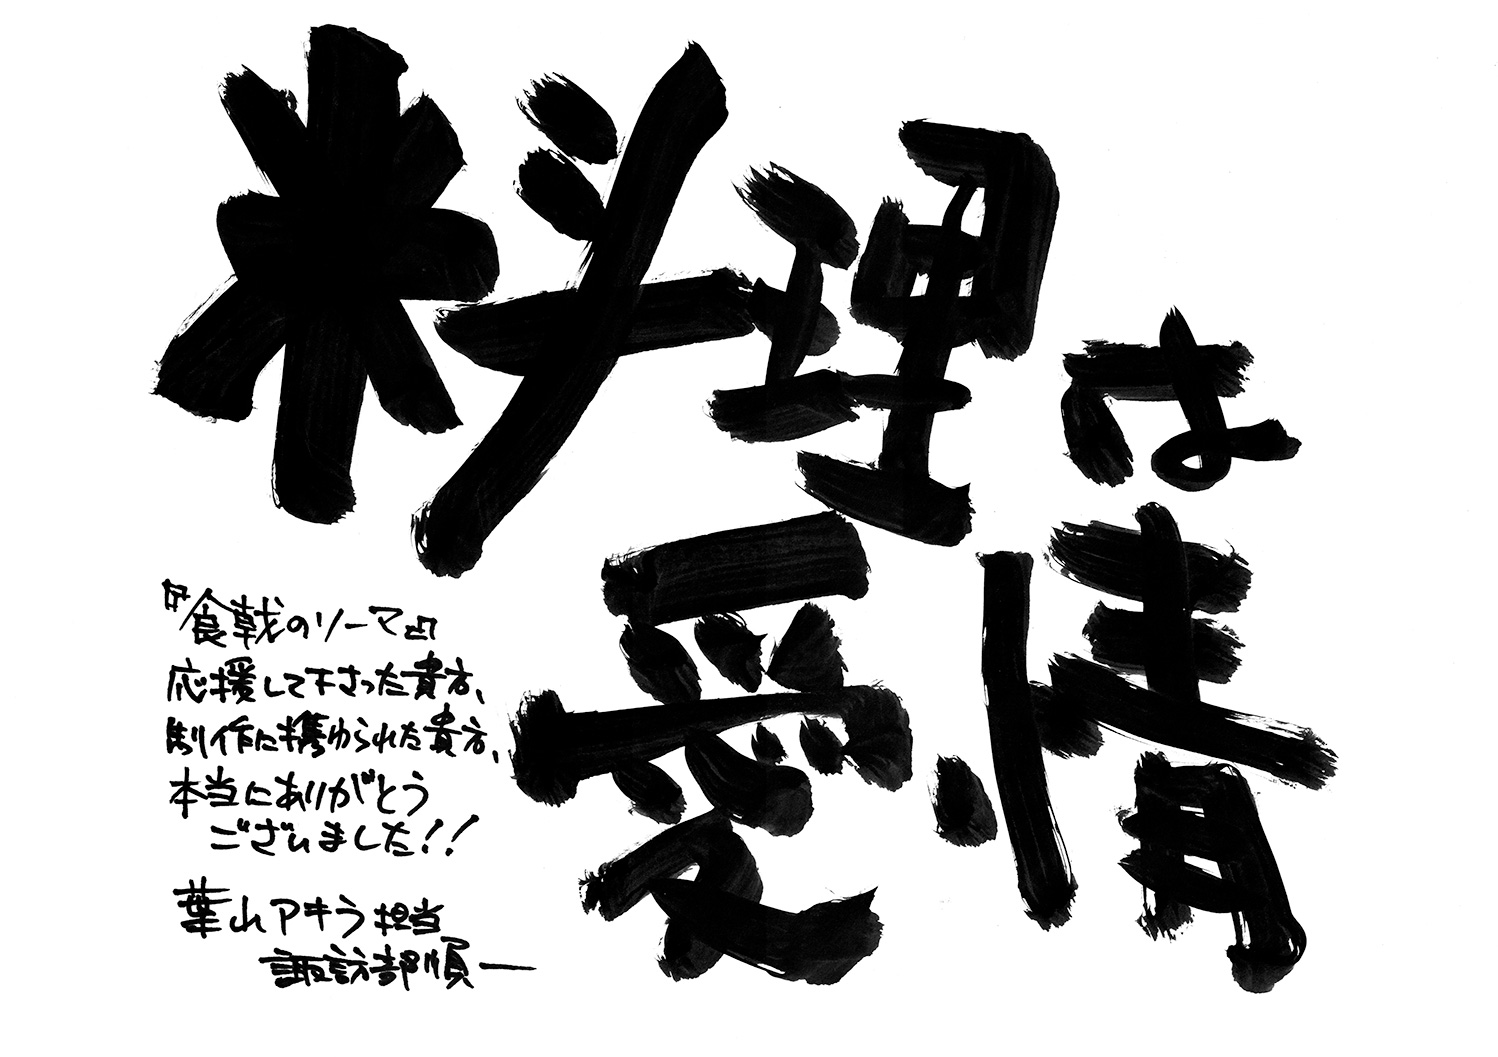 料理は
愛情
『食戟のソーマ』
応援して下さった貴方、
制作に携わられた貴方、
本当にありがとう
ございました!!
葉山アキラ担当
諏訪部順一